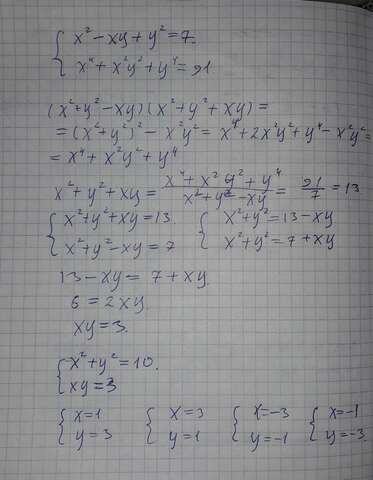 { x² - xy + y² = 7.
x⁴ + x²y² + y⁴ = 91
(x² + y² - xy)(x² + y² + xy) =
= (x² + y²)² - x²y² = x⁴ + 2x²y² + y⁴ - x²y² =
= x⁴ + x²y² + y⁴
x² + y² + xy = (x⁴ + x²y² + y⁴)/(x² + y² - xy) = 91/7 = 13
{ x² + y² + xy = 13 { x² + y² = 13 - xy
x² + y² - xy = 7 x² + y² = 7 + xy
13 - xy = 7 + xy
6 = 2xy
xy = 3.
{ x² + y² = 10.
xy = 3
{ x = 1 { x = 3 { x = -3 { x = -1
y = 3 y = 1 y = -1 y = -3